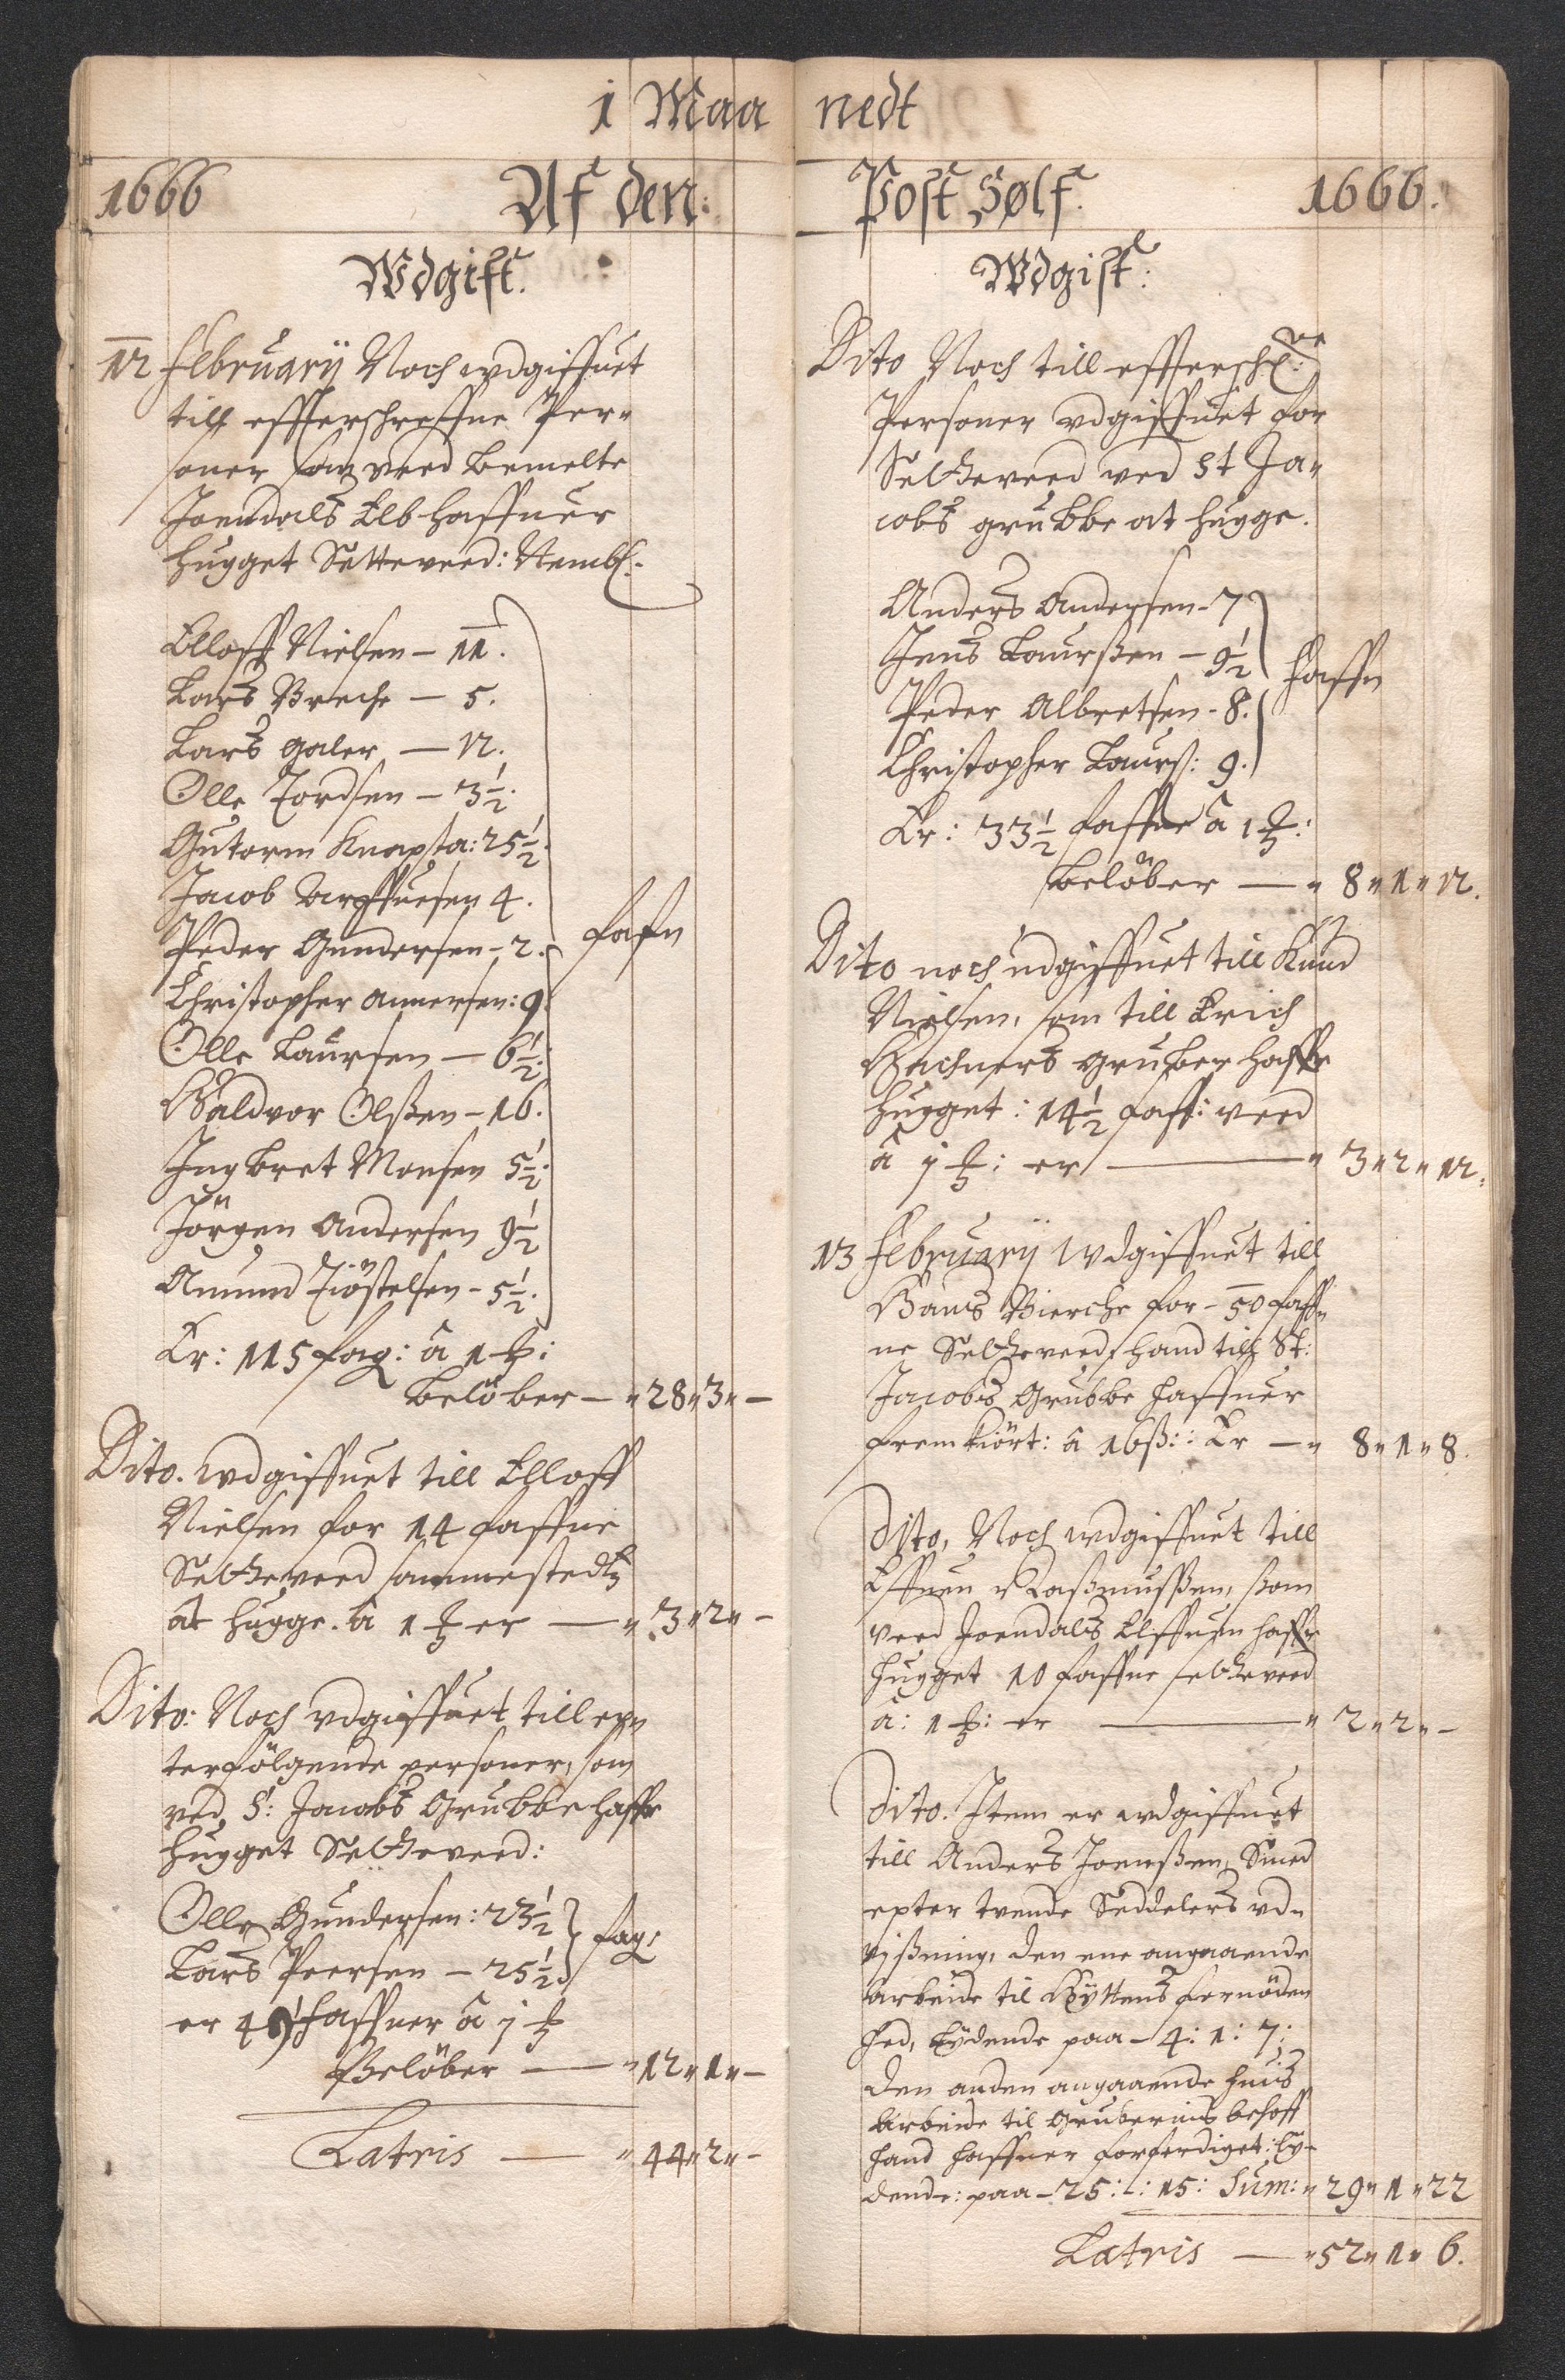 i Maa nedt
1666 Af den:
Wdgift.
12 February Noch wdgiffuet
till effterschreffne Per-
soner som veed bemelte
Joendals Elb haffuer
hugget Setteveed: Nembl:
Elloff Nielsen - 11.
Lars Breche - 5.
Lars Galer - 12.
Olle Tordsen - 3½.
Gutorm Knapsta: 25½.
Jacob Arffuesen 4.
Peder Gundersen - 2.
Christopher Annersen: 9.
Olle Laursen - 6½:
Haldvor Olssen - 16.
Ingbret Monsen 5½.
Jörgen Andersen 9½
Amund Kiöstelsen - 5½.
fafn
Er: 115 fag: â 1 ℔:
belöber - " 28 " 3 " -
Dito. wdgiffuet till Elloff
Nielsen for 14 faffne
Setteveed sammestedtz
at hugge. â 1 ℔ er - " 3 " 2 " -
Dito: Noch vdgiffuet till ep-
terfölgende personer, som
ved S: Jacobs Grubbe haffr
hugget Setteveed:
Olle Gundersen: 23½
Lars Peersen - 25½
fag:
er 49 faffner â j ℔
Belöber - " 12 " 1 " -
Latris - " 44 " 2 " -
Post Sølf. 1666.
Wdgift:
Dito Noch till effterschr:ne
Personer vdgiffuet for
Setteveed ved St Ja-
cobs grubbe at hugge.
Anders Andersen - 7
Jens Laurssen - 9½
Peder Albretsen - 8.
Christopher Laurs: 9.
haffn
Er: 33½ faffne â 1 ℔:
belöber - " 8 " 1 " 12.
Dito noch udgiffuet till Knud
Nielsen, som till Erich
Bechners Gruber haffr
hugget: 14½ faff: veed
â j ℔: er - " 3 " 2 " 12.
13 February Wdgiffuet till
Hans Bierche for - 50 faff-
ne Setteveed, hand till St:
Jacobs Grubbe haffuer
fremkiört: â 16 ß:: Er - " 8 " 1 " 8.
Dito, Noch wdgiffuet till
Effuen Rassmussen, ssom
veed Joendals Elffuen haffr
hugget 10 faffne setteveed
â: 1 ℔: er - " 2 " 2 " -
Dito. Item er wdgiffuet
till Anders Joenssen Smed
epter tvende Seddelers vd-
vissning, den ene angaaende
Arbeide til Hyttens fornöden
hed, lydende paa - 4: 1: 7:
den anden angaaende huis
Arbeide til Grubernis behoff
hand haffuer forferdiget: ly-
dende: paa - 25: l: 15: Sum: " 29 " 1 " 22
Latris - " 52 " 1 " 6.